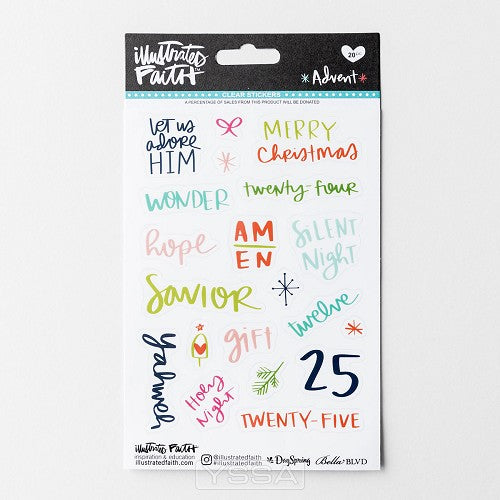 illustrated
FAITH™
20 PC
Advent
CLEAR STICKERS
A PERCENTAGE OF SALES FROM THIS PRODUCT WILL BE DONATED
let us
adore
HIM
MERRY
Christmas
WONDER
twenty-four
hope
AM
EN
SILENT
Night
SAVIOR
twelve
Yahweh
gift
Holy
Night
25
TWENTY-FIVE
illustrated FAITH
inspiration & education
illustratedfaith.com
@illustratedfaith
@illustratedfaith
DaySpring
Bella BLVD
YSSA